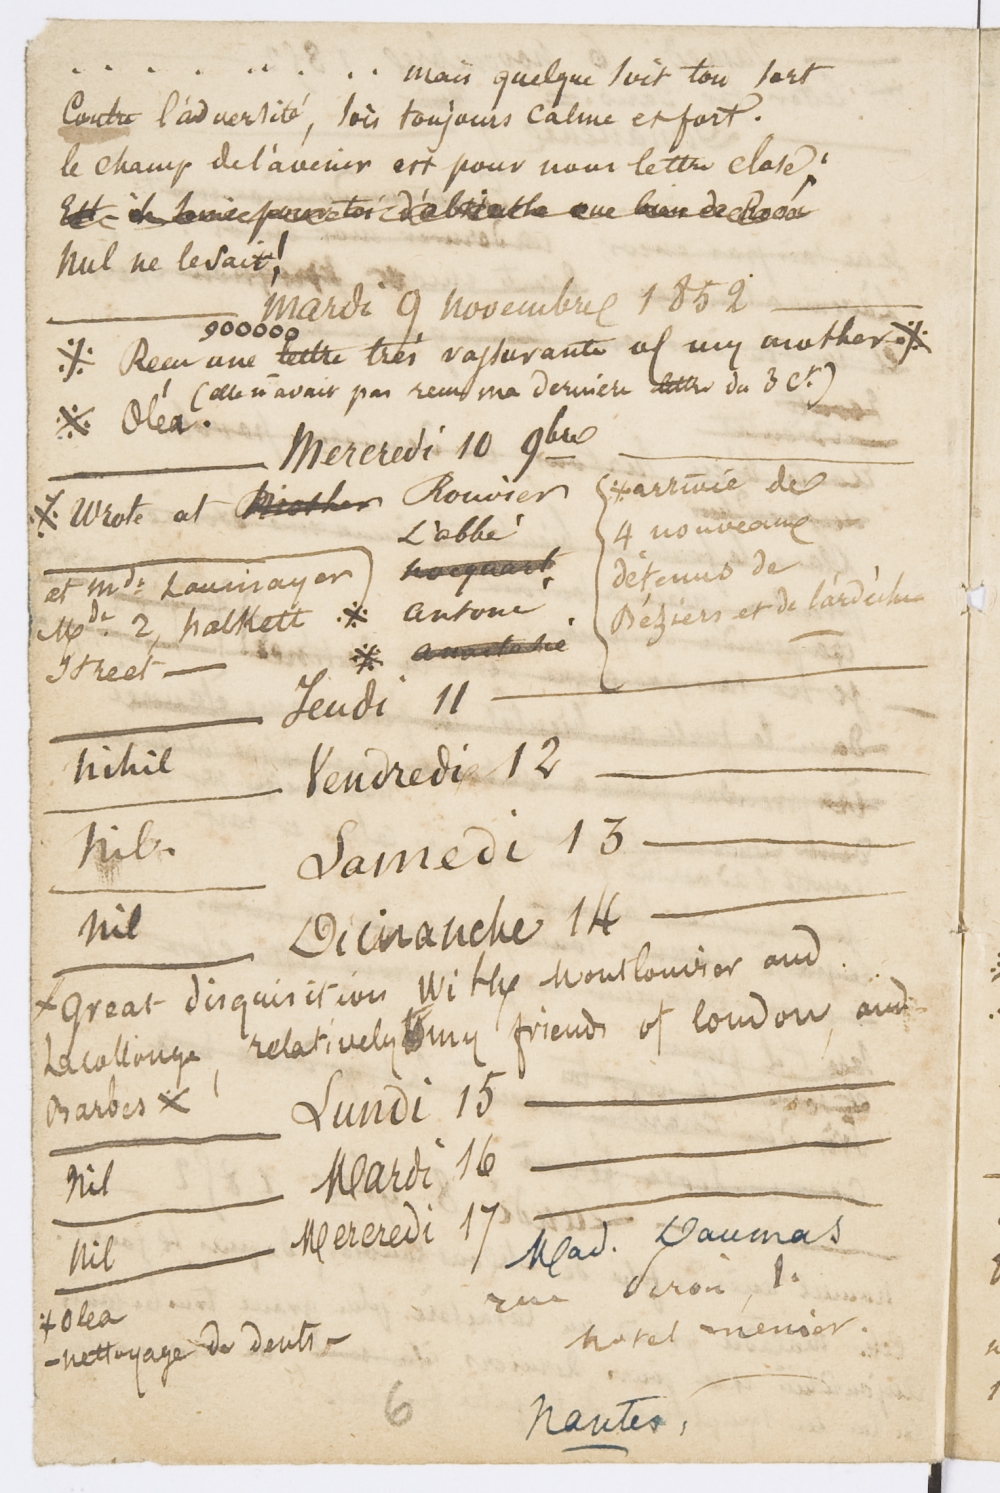 . . . . . . . . . mais quelque soit ton sort
Contre l'adversité, sois toujours calme et fort.
le champ de l'avenir est pour nous lettre close;
Nul ne le sait!
Mardi 9 Novembre 1852
900000
※ Recu une lettre très rassurante of my mother ※
(elle n'avait pas recu ma dernière lettre du 3 Ct.)
※ Oléa.
Mercredi 10 9bre
※ Wrote at Mother
et Mde Laumayer
Mde. 2, halkett
Street —
Rouvier
L'abbé
hocquart
※ Antone
※ anastasie
+ arrivée de
4 nouveaux
détenus de
Béziers et de l'ardèche
Jeudi 11
Nihil
Vendredi 12
Nil.
Samedi 13
Nil
Dimanche 14
+ Great disquisition With Montlouvier and
Lacollonge, relatively to my friends of london, and
Barbes ※
Lundi 15
Nil
Mardi 16
Nil
Mercredi 17
+ Olea
- nettoyage de dents -
Mad. Daumas
rue 1.
hotel menier.
Nantes,
6